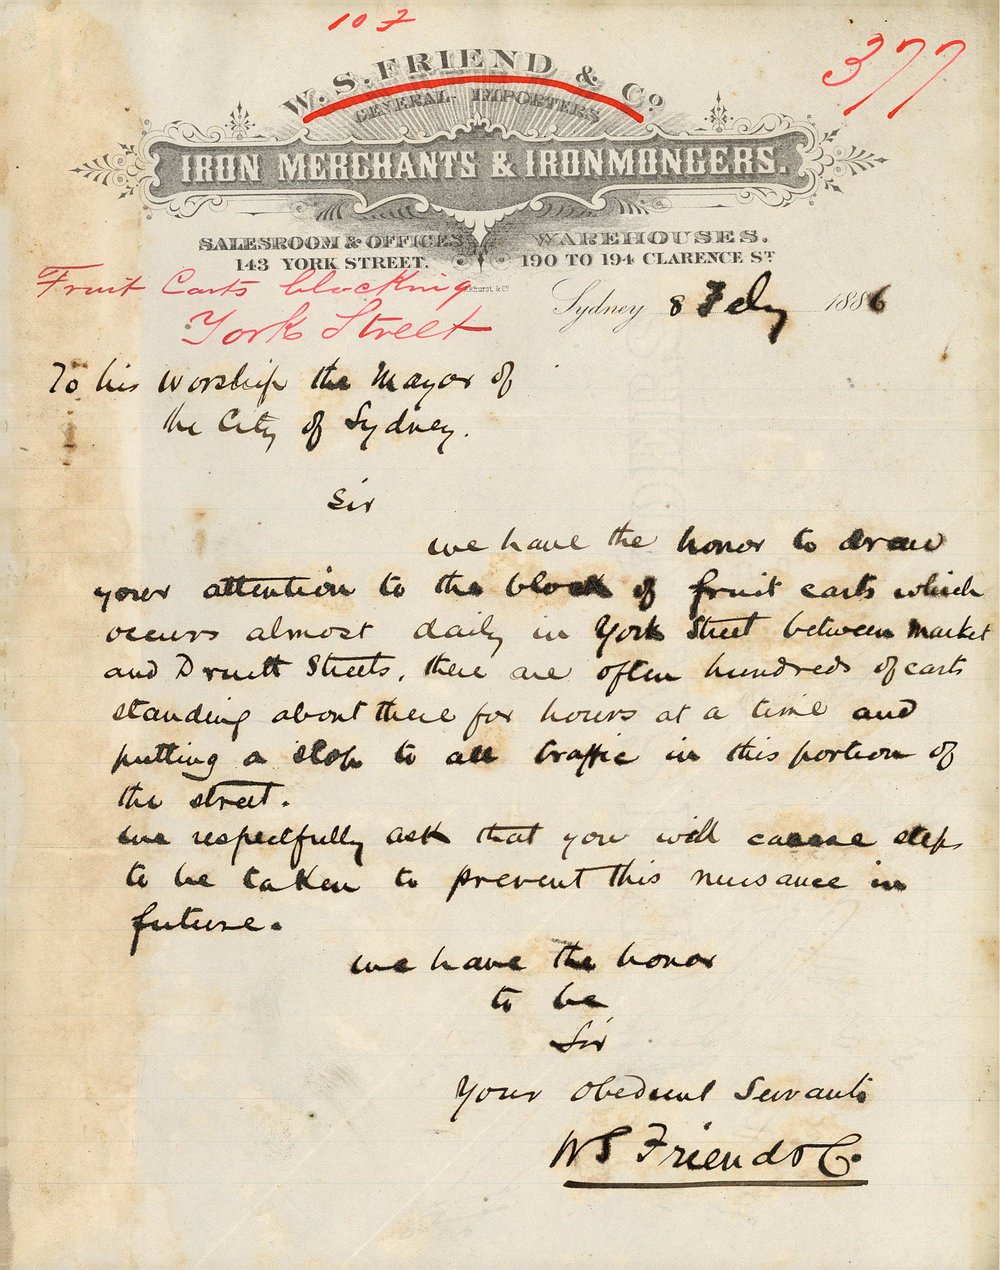 107
377
W. S. FRIEND & Co.
GENERAL IMPORTERS
IRON MERCHANTS & IRONMONGERS.
SALESROOM & OFFICES
143 YORK STREET.
WAREHOUSES.
190 TO 194 CLARENCE ST
Fruit Carts blocking
York Street
Sydney 8 Feby 1886
To his Worship the Mayor of
the City of Sydney.
Sir
we have the honor to draw
your attention to the block of fruit carts which
occurs almost daily in York Street between Market
and Druitt Streets, there are often hundreds of carts
standing about there for hours at a time and
putting a stop to all traffic in this portion of
the street.
we respectfully ask that you will cause steps
to be taken to prevent this nuisance in
future.
we have the honor
to be
Sir
Your Obedient Servants
W S Friend & Co.